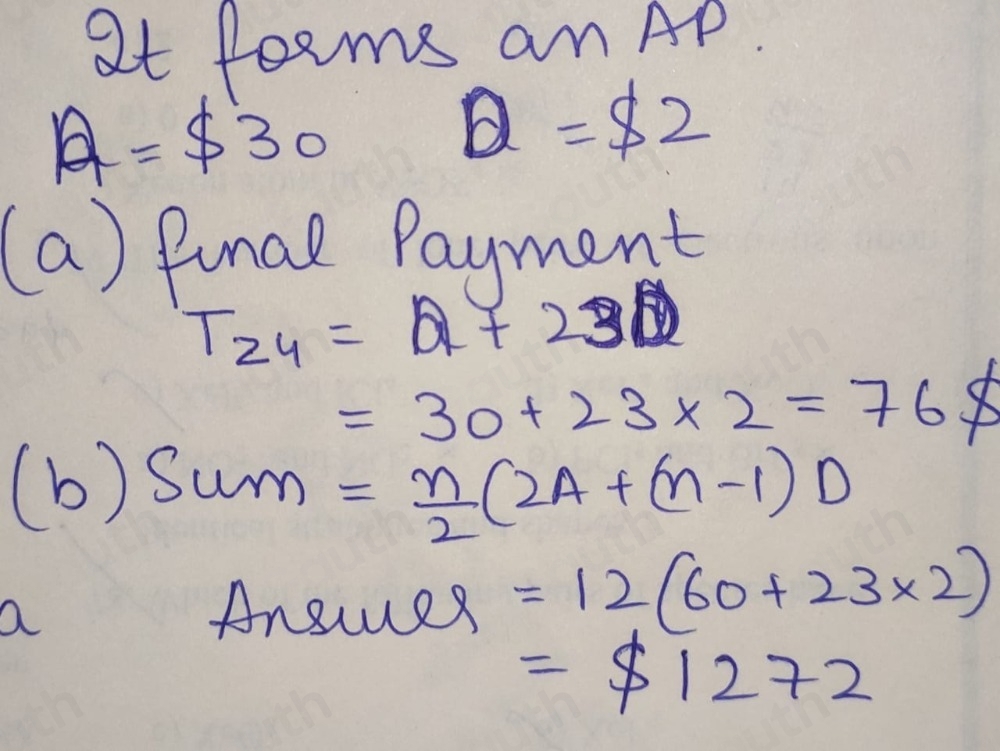 It forms an AP.
A = $30 D = $2
(a) final Payment
T24 = A + 23D
= 30 + 23 × 2 = 76 $
(b) Sum = n/2 (2A + (n - 1) D
a Answer = 12 (60 + 23 × 2)
= $1272